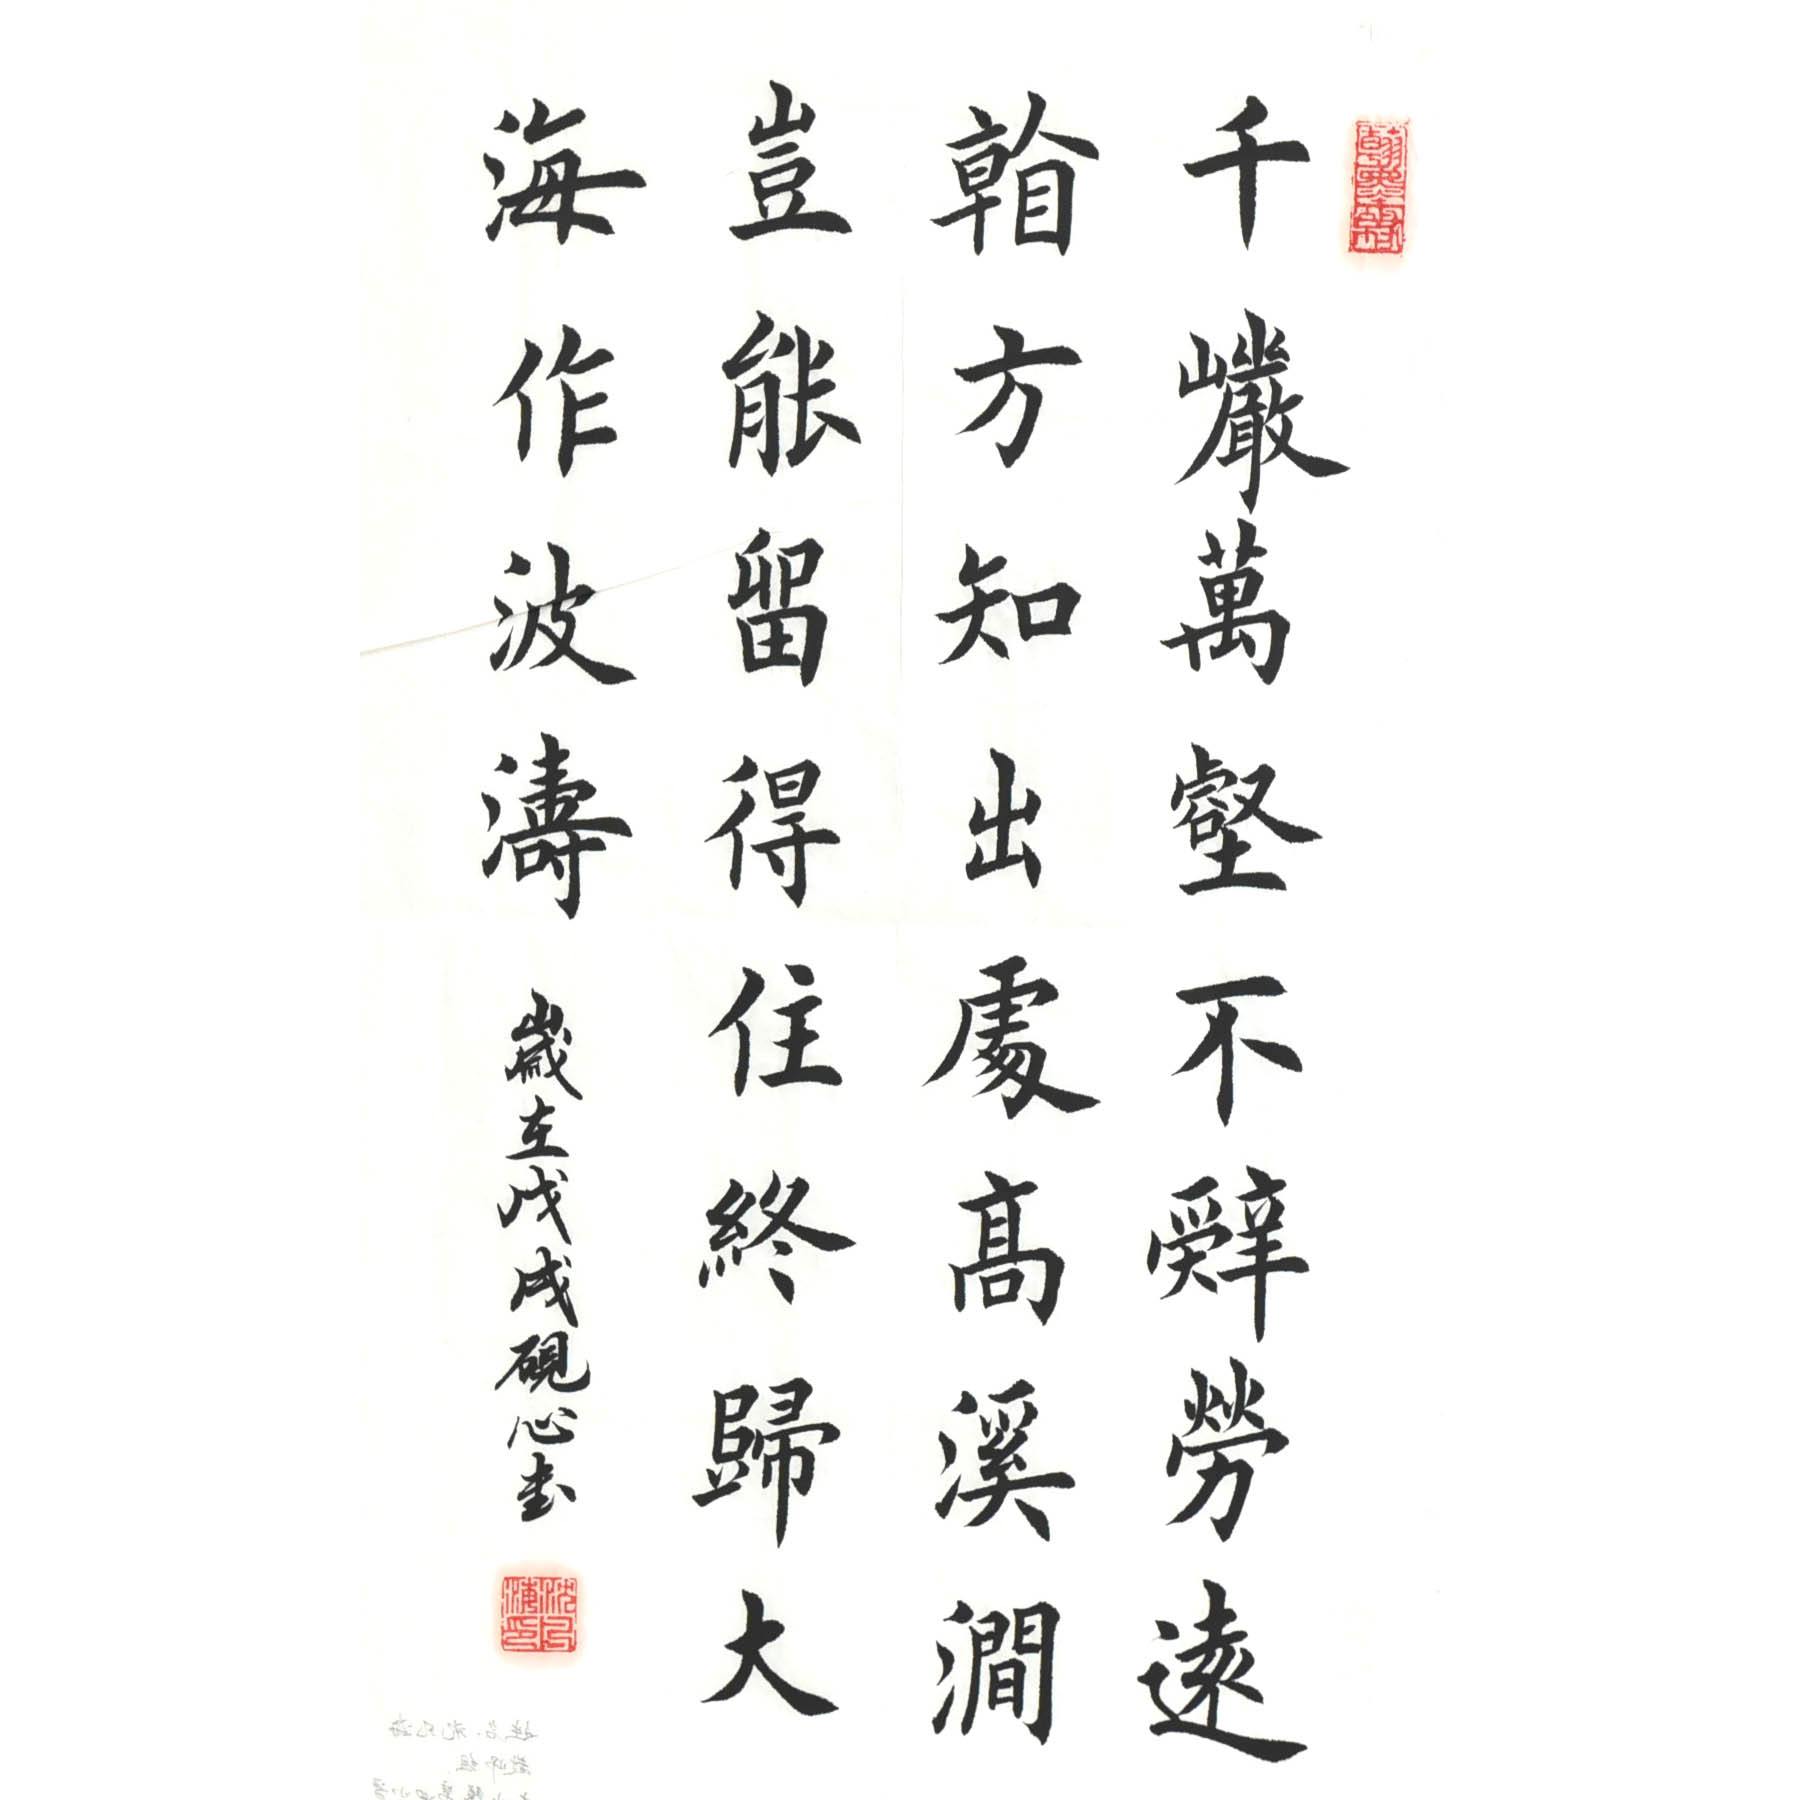 千巖萬壑不辭勞遠
看方知出處高溪澗
豈能留得住終歸大
海作波濤
歲在戊戌硯心書